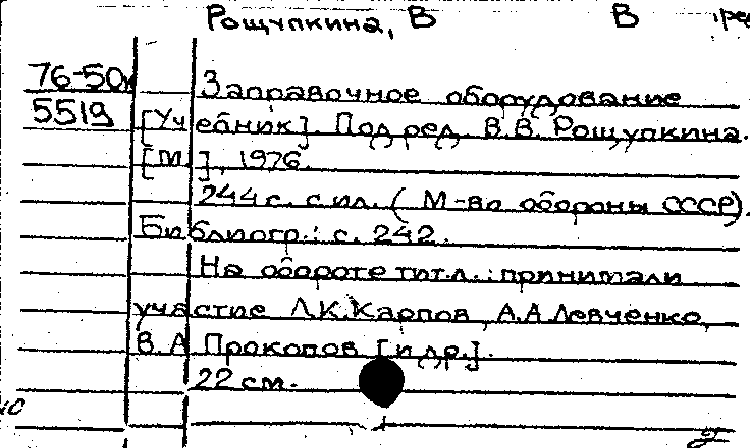 Рощупкина, В В ред
76-50к
5519
Заправочное оборудование
[Учебник]. Под ред. В.В. Рощупкина.
[М.], 1976.
244 с. с ил. (М-во обороны СССР).
Библиогр.: с. 242.
На обороте тит.л.: принимали
участие Л.К. Карпов, А.А Левченко,
В.А Прокопов [и др.].
22 см.